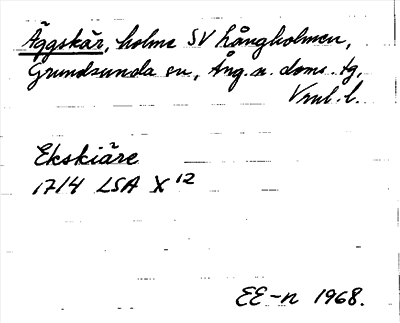 Äggskär, holme SV Långholmen,
Grundsunda sn, Ång. n. doms. tg,
Vnul. l.
Ekskiäre
1714 LSA X 12
EE-n 1968.